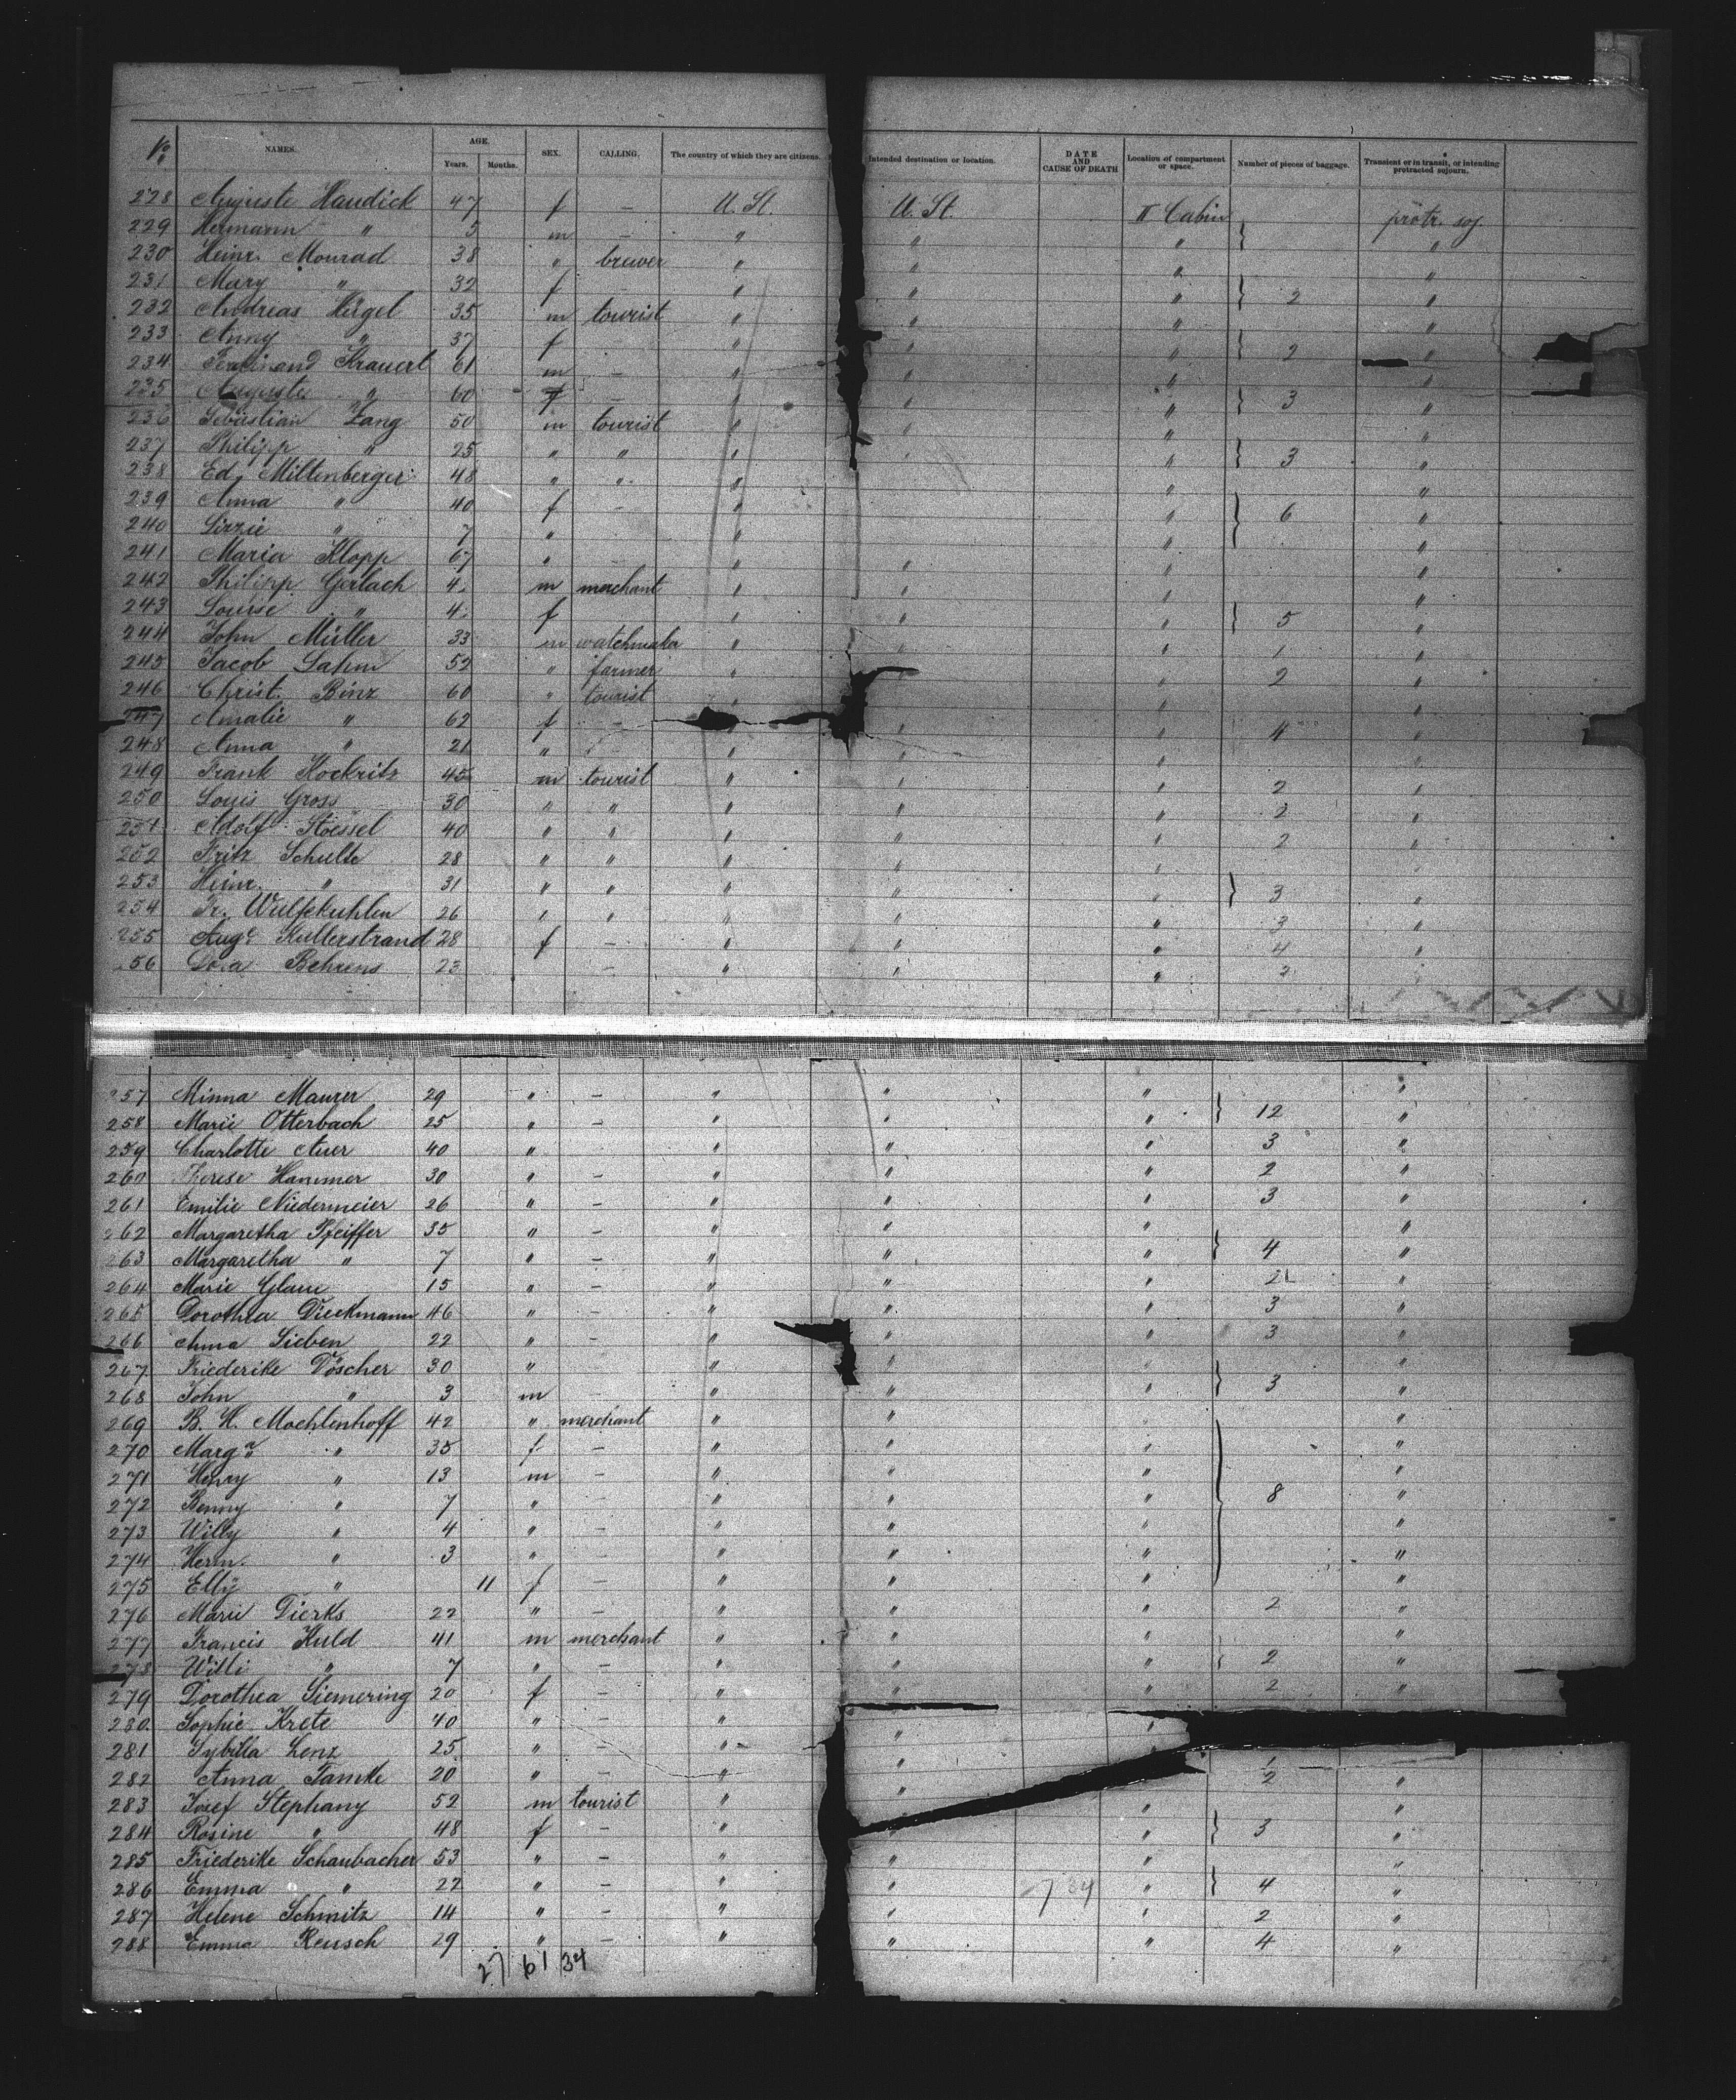 No. NAMES. AGE. Years. Months. SEX. CALLING. The country of which they are citizens. Intended destination or location. DATE AND CAUSE OF DEATH Location of compartment or space. Number of pieces of baggage. Transient or in transit, or intending protracted sojourn.
228 Auguste Haudick 47 f — U. St. U. St. II Cabin protr. soj.
229 Hermann " 5 m — " " " "
230 Heinr. Monrad 38 " brewer " " " "
231 Mary " 32 f — " " " 2 "
232 Andreas Hügel 35 m tourist " " " "
233 Anny " 37 f — " " " 2 "
234 Ferdinand Krauert 61 m — " " " "
235 Auguste " 60 f — " " " 3 "
236 Sebastian Zang 50 m tourist " " " "
237 Philipp " 25 " " " " " 3 "
238 Ed. Miltenberger 48 " " " " "
239 Anna " 40 f — " " 6 "
240 Lizzie " 7 " — " " "
241 Maria Klopp 67 " — " " " "
242 Philipp Gerlach 4 m merchant " " " "
243 Louise " 4 f " " " 5 "
244 John Müller 33 m watchmaker " " " 1 "
245 Jacob Lahm 52 " farmer " " " 2 "
246 Christ. Binz 60 " tourist " " " "
247 Amalie " 62 f — " " 4 "
248 Anna " 21 " — " " " "
249 Frank Kockritz 45 m tourist " " " 2 "
250 Louis Gross 30 " " " " " 2 "
251 Adolf Stoessel 40 " " " " " 2 "
252 Fritz Schulte 28 " " " " " "
253 Heinr. " 31 " " " " " 3 "
254 Fr. Wulfekuhlen 26 " " " " " 3 "
255 Auge Kullerstrand 28 f — " " " 4 "
256 Dora Behrens 23 — " " " 2 "
257 Minna Maurer 29 " — " " " "
258 Marie Otterbach 25 " — " " " 12 "
259 Charlotte Auer 40 " " " " 3 "
260 Therese Hammer 30 " — " " " 2 "
261 Emilie Niedermeier 26 " — " " " 3 "
262 Margaretha Pfeiffer 35 " — " " " "
263 Margaretha " 7 " — " " " 4 "
264 Marie Glaue 15 " — " " " 2 "
265 Dorothea Dieckmann 46 " — " " " 3 "
266 Anna Sieben 22 " — " " " 3 "
267 Friederike Döscher 30 " " " "
268 John " 3 m — " " " 3 "
269 B. H. Moehlenhoff 42 " merchant " " " "
270 Marga " 35 f — " " " "
271 Henry " 13 m — " " " "
272 Benny " 7 " — " " " 8 "
273 Willy " 4 " — " " " "
274 Herm. " 3 " — " " " "
275 Elly " 11 f — " " " "
276 Marie Dierks 22 " — " " " 2 "
277 Francis Kuld 41 m merchant " " " "
278 Willi " 7 " — " " " 2 "
279 Dorothea Siemering 20 f — " " " 2 "
280 Sophie Krete 40 " — " " "
281 Sybilla Lenz 25 " — " " " 1
282 Anna Tamke 20 " — " " 2 "
283 Josef Stephany 52 m tourist " " "
284 Rosine " 48 f — " " " 3 "
285 Friederike Schaubacher 53 " — " " " "
286 Emma " 22 " — " " 734 " 4 "
287 Helene Schmitz 14 " — " " " 2 "
288 Emma Reusch 29 " — " " " 4 "
27 61 34